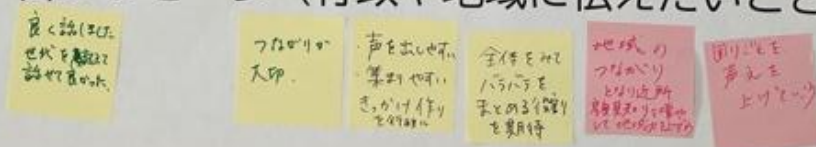 に伝えたいこと
良く話しました
世代を超えて
話せて良かった。
つながりが
大切.
・声を出しやすい
・集まりやすい
きっかけ作り
を行政に
全体をみて
バラバラを
まとめる役割
を期待
地域の
つながり
となり近所
困りごとを
声を
上げていく